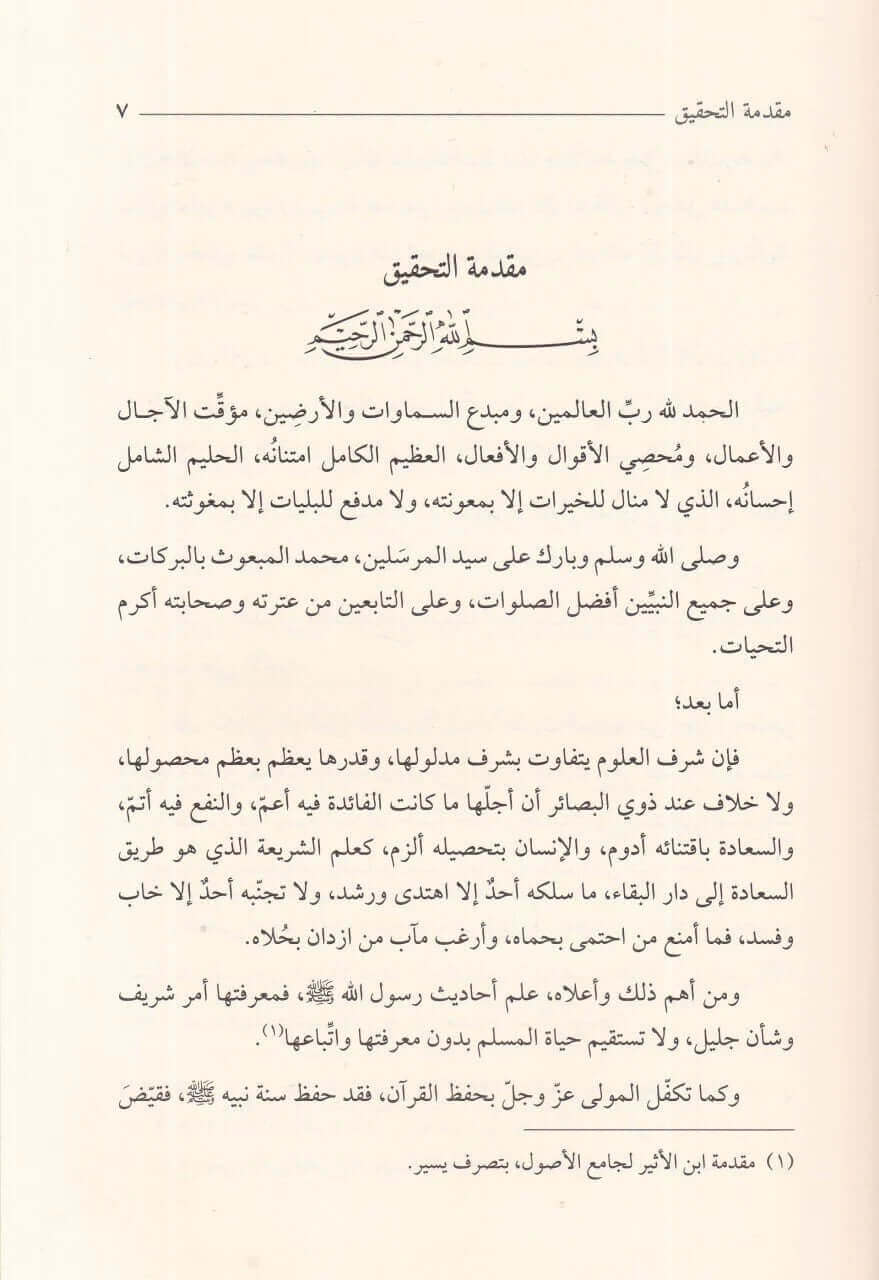 مقدمة التحقيق ٧
مقدمة التحقيق
بسم الله الرحمن الرحيم
الحمد لله ربِّ العالمين، ومبدع السماوات والأرضِين، مؤقِّت الآجال
والأعمال، ومُحصِي الأقوال والأفعال، العظيم الكامل امتنانُه، الحليم الشامل
إحسانُه، الذي لا منال للخيرات إلا بمعونته، ولا مدفع للبليات إلا بمغوثته.
وصلى الله وسلم وبارك على سيد المرسَلين، محمد المبعوث بالبركات،
وعلى جميع النبيِّين أفضل الصلوات، وعلى التابعين من عترته وصحابته أكرم
التحيات.
أما بعد؛
فإن شرف العلوم يتفاوت بشرف مدلولها، وقدرها يعظم بعظم محصولها،
ولا خلاف عند ذوي البصائر أن أجلّها ما كانت الفائدة فيه أعمّ، والنفع فيه أتمّ،
والسعادة باقتنائه أدوم، والإنسان بتحصيله ألزم، كعلم الشريعة الذي هو طريق
السعادة إلى دار البقاء، ما سلكه أحدٌ إلا اهتدى ورشد، ولا تجنّبه أحدٌ إلا خاب
وفسد، فما أمنع من احتمى بحماه، وأرغب مآب من ازدان بحُلاه.
ومن أهم ذلك وأعلاه، علم أحاديث رسول الله ﷺ، فمعرفتها أمر شريف
وشأن جليل، ولا تستقيم حياة المسلم بدون معرفتها واتِّباعها(١).
وكما تكفّل المولى عزّ وجلّ بحفظ القرآن، فقد حفظ سنة نبيه ﷺ، فقيّضَ
(١) مقدمة ابن الأثير لجامع الأصول، بتصرف يسير.